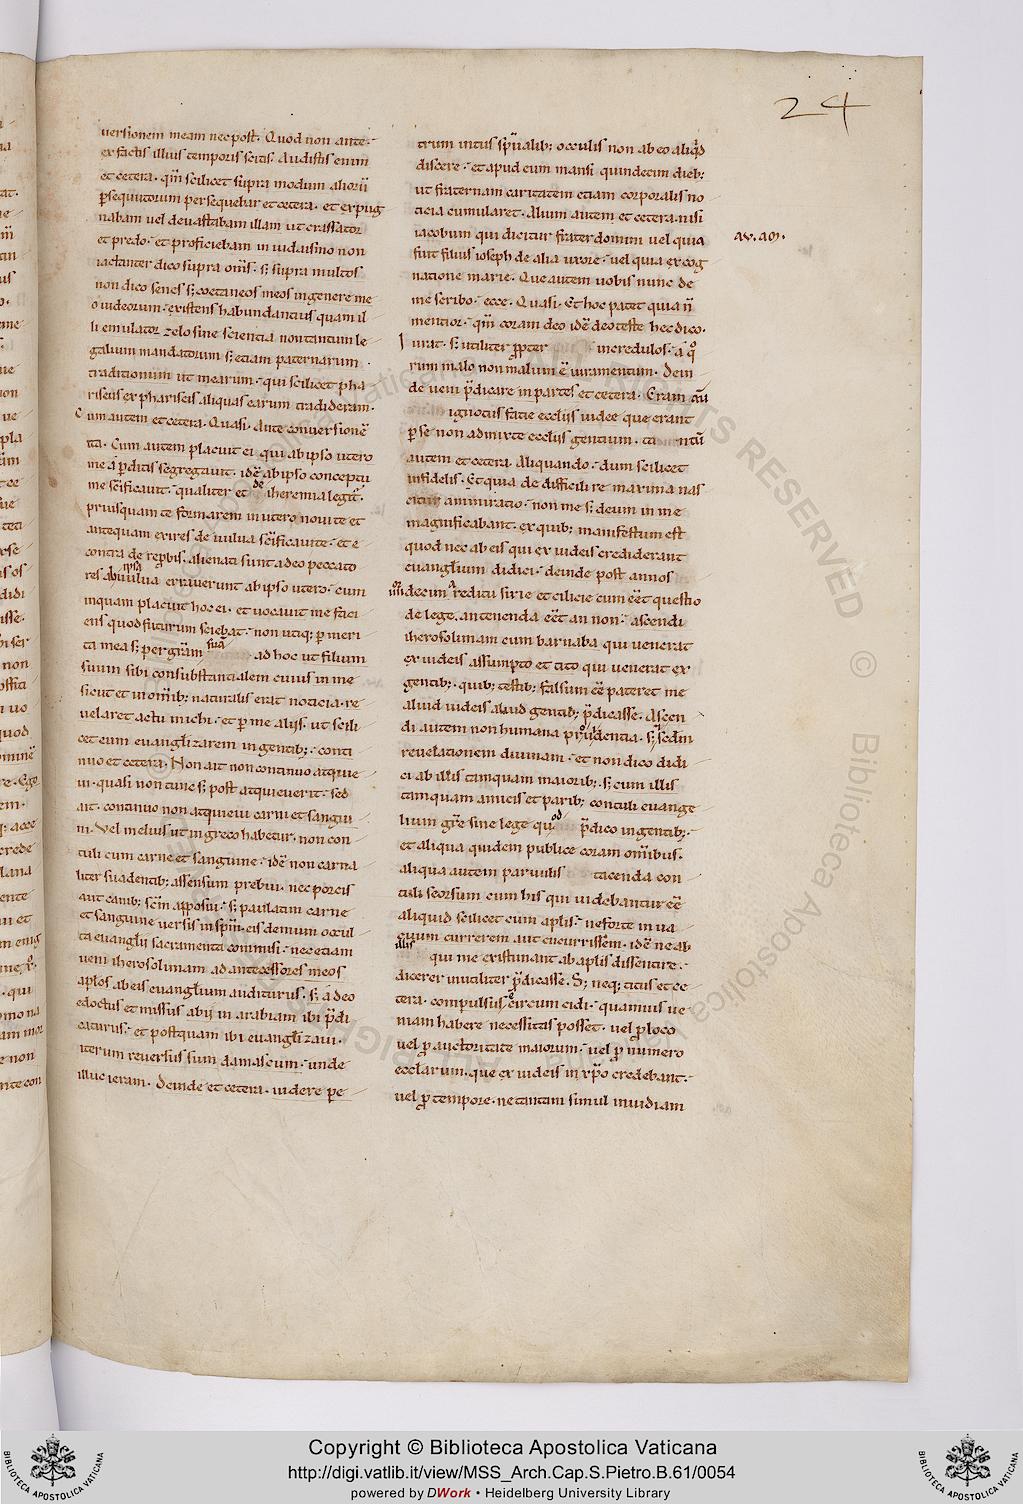 24
versionem meam nec post̄. Quod non ante.
ex factis illius temporis scitis. Audistis enim
et cetera. qm̄ scilicet supra modum aliorū
p̱sequutorum persequebar et cetera. et expug
nabam vel devastabam illam ut crassator
et predo. et proficiebam in iudaismo non
iactanter dico supra om̄s. s; supra multos
non dico senes s; coetaneos meos in genere me
o iudeorum. existens habundantius quam il
li emulator zelo sine scientia non tantum le
galium mandatorum s; etiam paternarum
traditionum ut mearum. qui scilicet pha
riseus ex phariseis aliquas earum tradideram.
Cum autem et cetera. Quasi. Ante conversionē
ita. Cum autem placuit ei qui ab ipso utero
me a p̱ditis segregavit. idē ab ipso conceptu
me scīficavit. qualiter et de iheremia legit̄.
priusquam te formarem in utero novi te et
antequam exires de vulva scīficavi te. et e
contra de rep̱bis. alienati sunt a deo peccato
res ab ipsa vulva erraverunt ab ipso utero. cum
inquam placuit hoc ei. et vocavit me faci
ens quod futurum sciebat. non utiq; p̱ meri
ta mea s; per grām suā ad hoc ut filium
suum sibi consubstantialem cuius in me
sicut et in om̄ib; naturalis erat noticia. re
velaret actu michi. et p̱ me alijs. ut scili
cet eum evanglizarem in gentib;. conti
nuo et cetera. Non ait non continuo atquie
vi. quasi non tunc s; post atquieverit. sed
ait. continuo non atquievi carni et sangui
ni. Vel melius ut in greco habetur. non con
tuli cum carne et sanguine. idē non carna
liter suadentib; assensum prebui. nec porcis
aut canib; scm̄ apposui. s; paulatim carne
et sanguine versis in spm̄. eis demum occul
ta evanglij sacramenta commisi. nec etiam
veni iherosolimam ad antecessores meos
apl̄os ab eis evanglium auditurus. s; a deo
edoctus et missus abij in arabiam ibi p̱di
caturus. et postquam ibi evanglizavi.
iterum reversus sum damascum. unde
illuc ieram. Deinde et cetera. videre pe
trum intus spūalib; occulis non ab eo aliq̇d
discere. et apud eum mansi quindecim dieb;
ut fraternam caritatem etiam corporalis no
ticia cumularet. Alium autem et cetera. nisi
iacobum qui dicitur frater domini vel quia
fuit filius ioseph de alia uxore. vel quia ex cog
natione marie. Que autem vobis nunc de
me scribo. ecce. Quasi. Et hoc patet quia n̄
mentior. qm̄ coram deo idē deo teste hec dico.
Iurat. s; utiliter p̱pter incredulos. a q̊
rum malo non malum ē iuramentum. Dein
de veni p̱dicare in partes et cetera. Eram aū
ignotus facie ecclijs iudee que erant
p̱ se non admixte ecclijs gentium. ta ntū
autem et cetera. Aliquando. dum scilicet
infidelis. Et quia de difficili re maxima nas
citur ammiratio. non me s; deum in me
magnificabant. ex quib; manifestum est
quod nec ab eis qui ex iudeis crediderant
evanglium didici. deinde post annos
decim reditu sirie et cilicie cum eēt questio
de lege. an tenenda eēt an non. ascendi
iherosolimam cum barnaba qui venerat
ex iudeis assumpto et tito qui venerat ex
gentib;. quib; testib; falsum eē pateret me
aliud iudeis aliud gentib; p̱dicasse. Ascen
di autem non humana providentia. s; sedm̄
revelationem divinam. et non dico didi
ci ab illis tamquam maiorib;. s; cum illis
tamquam amicis et parib; contuli evange
lium grē sine lege quod p̱dico in gentib;.
et aliqua quidem publice coram om̄ibus.
aliqua autem parvulis tacenda con
tuli seorsum cum his qui videbantur eē
aliquid scilicet cum aplis. ne forte in va
cuum currerem aut cucurrissem. idē ne ab
illis qui me existimant ab aplis dissentire.
dicerer inutiliter p̱dicasse. S; neq; titus et ce
tera. compulsus ē circumcidi. quamvis ve
niam habere necessitas posset. vel p̱ loco
vel p̱ auctoritate maiorum. vel p̱ numero
ecclarum. que ex iudeis in xp̄o credebant.
vel p̱ tempore. ne tantam simul invidiam
av. am.
Copyright © Biblioteca Apostolica Vaticana
http://digi.vatlib.it/view/MSS_Arch.Cap.S.Pietro.B.61/0054
powered by DWork • Heidelberg University Library